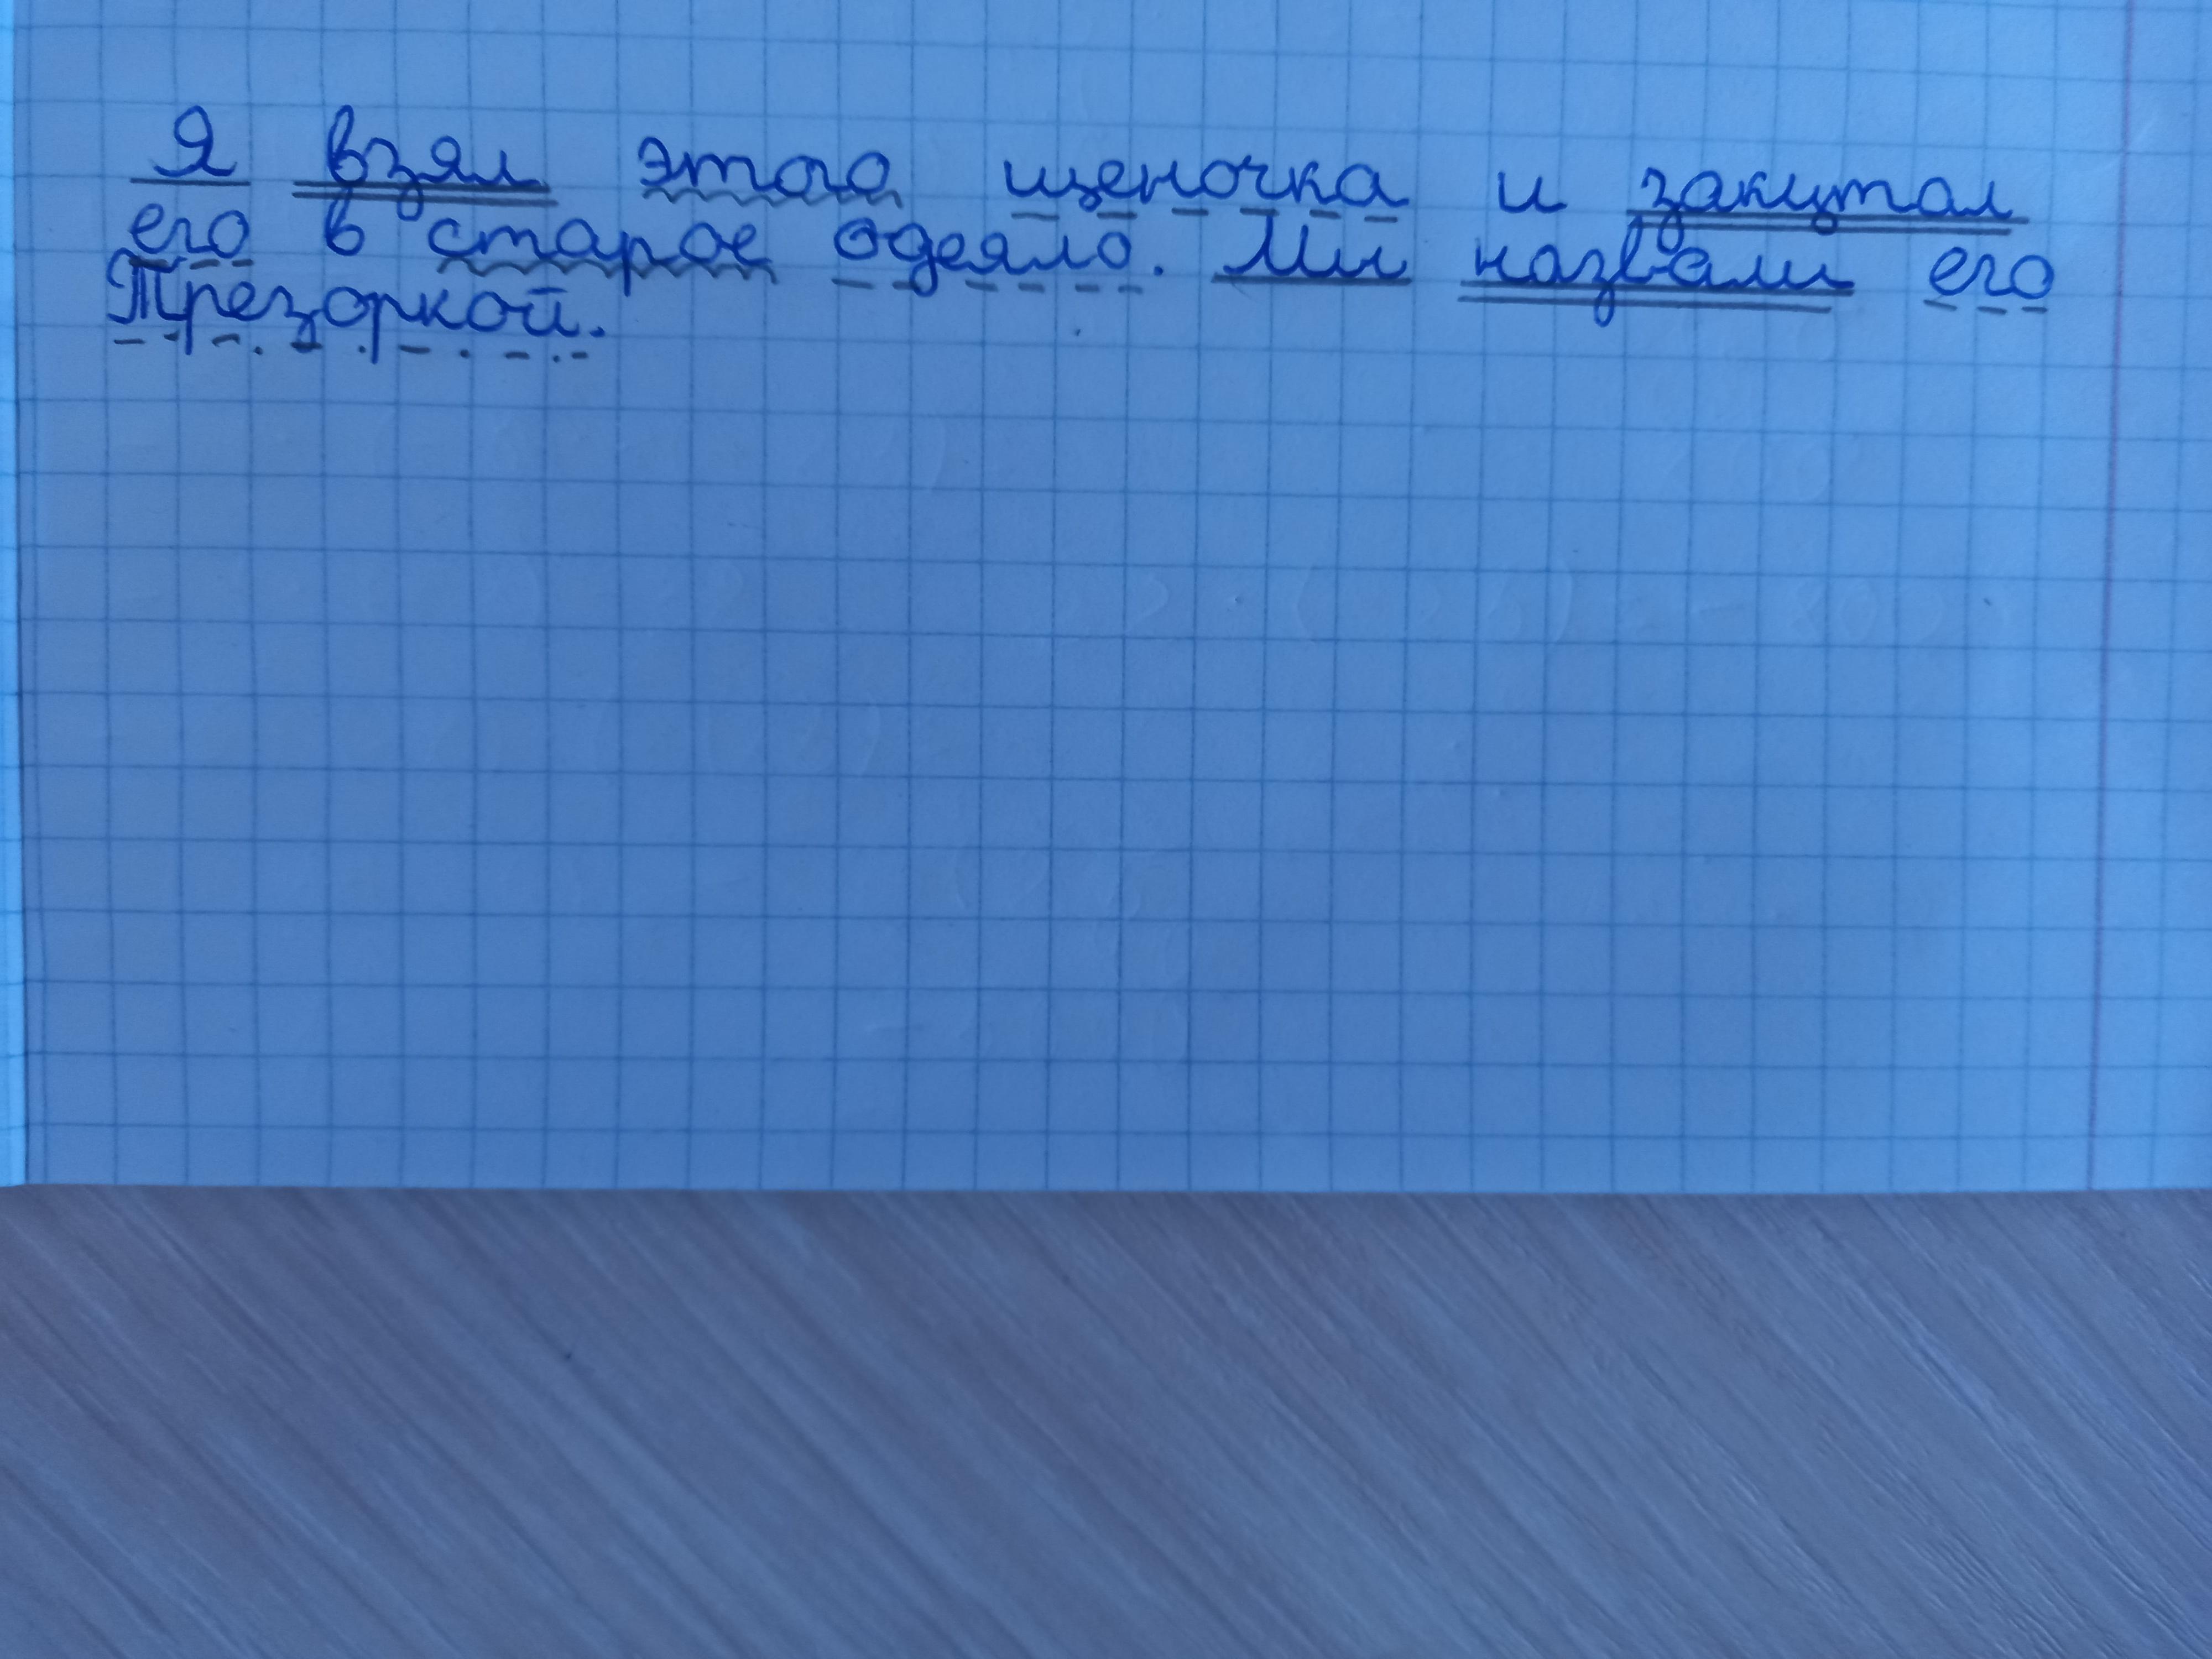 Я взял этого щеночка и закутал
его в старое одеяло. Мы назвали его
Трезоркой.